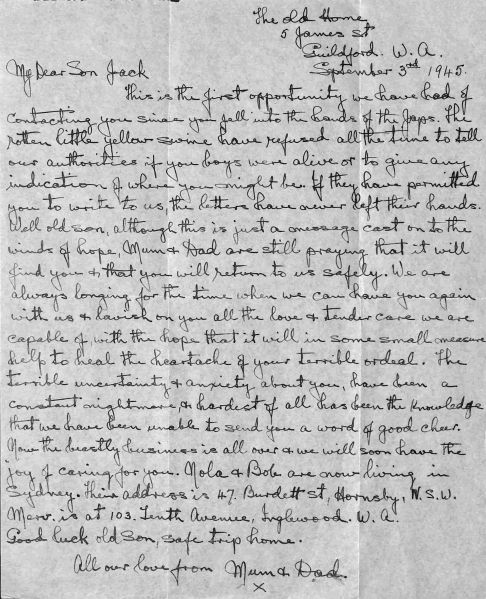 The old Home
5 James St
Guildford. W. A.
September 3rd 1945.
My Dear Son Jack
This is the first opportunity we have had of
contacting you since you fell into the hands of the Japs. The
rotten little yellow swine have refused all the time to tell
our authorities if you boys were alive or to give any
indication of where you might be. If they have permitted
you to write to us, the letters have never left their hands.
Well old son, although this is just a message cast on to the
winds of hope, Mum & Dad are still praying that it will
find you & that you will return to us safely. We are
always longing for the time when we can have you again
with us & lavish on you all the love & tender care we are
capable of, with the hope that it will in some small measure
help to heal the heartache of your terrible ordeal. The
terrible uncertainty & anxiety about you, have been a
constant nightmare, & hardest of all has been the knowledge
that we have been unable to send you a word of good cheer.
Now the beastly business is all over & we will soon have the
joy of caring for you. Nola & Bob are now living in
Sydney. Their address is 47. Burdett St, Hornsby, N.S.W.
Merv. is at 103. Tenth Avenue, Inglewood. W. A.
Good luck old Son, safe trip home.
All our love from Mum & Dad.
x